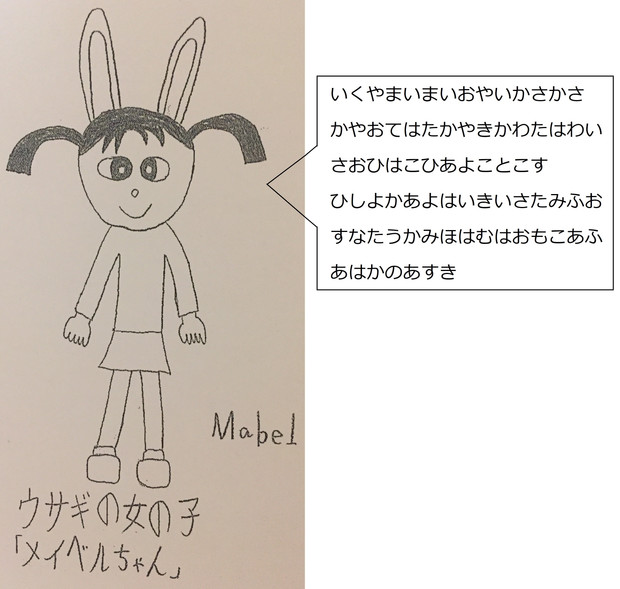 いくやまいまいおやいかさかさ
かやおてはたかやきかわたはわい
さおひはこひあよことこす
ひしよかあよはいきいさたみふお
すなたうかみほはむはおもこあふ
あはかのあすき
Mabel
ウサギの女の子
「メイベルちゃん」